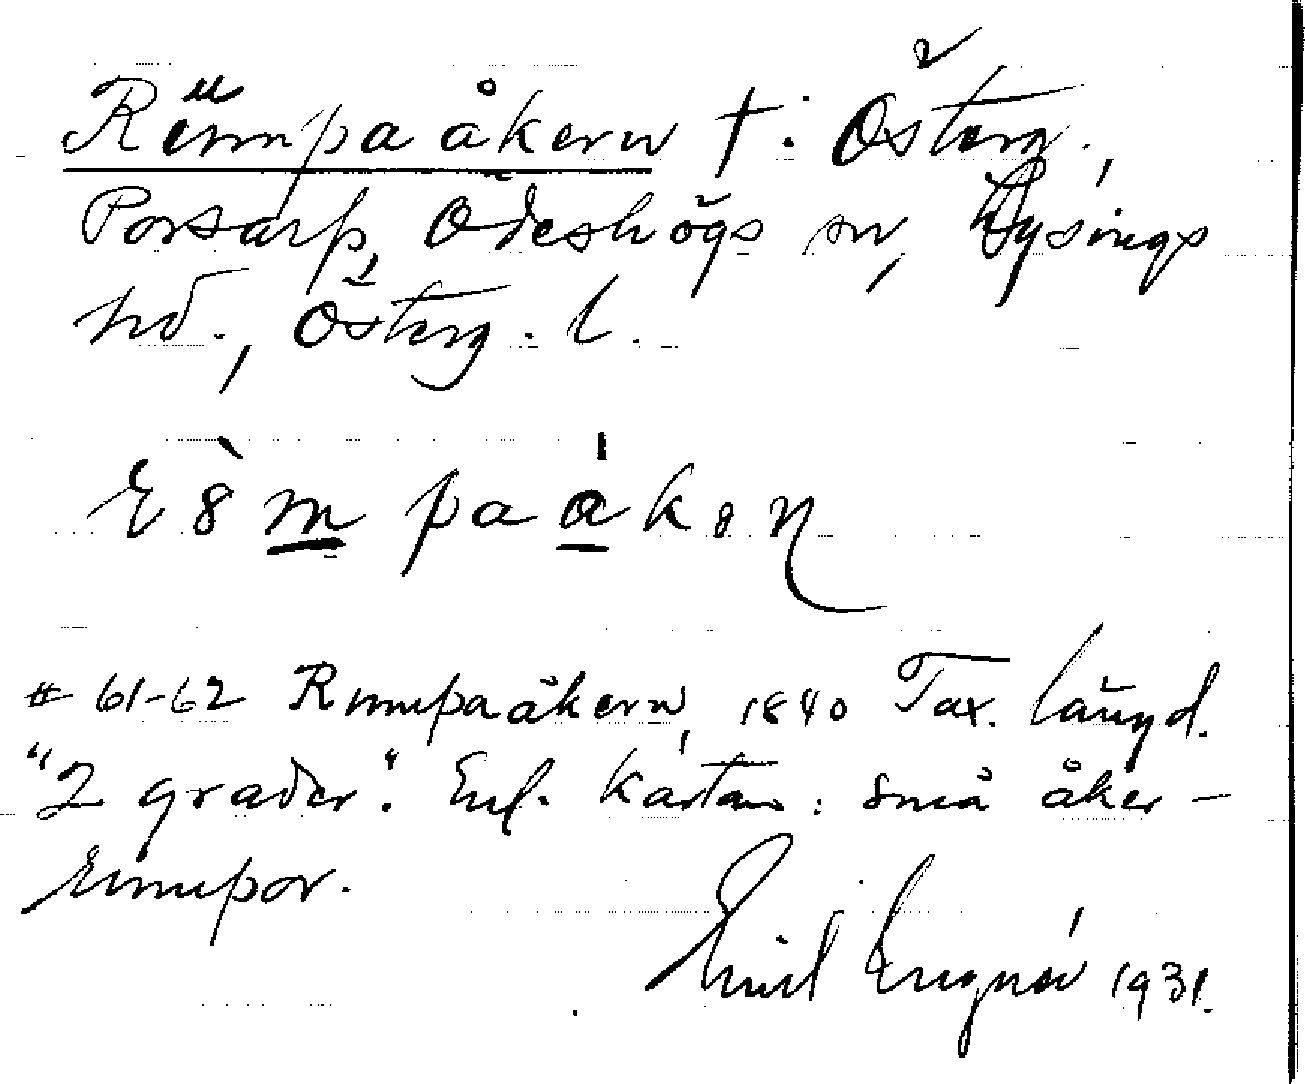 Rumpaåkern †: Österg.,
Porsarp, Ödeshögs sn, Lysings
hd., Österg. l.
# 61-62 Rumpaåkern, 1840 Tax. längd.
"2 grader". Enl. kartan: små åker-
rumpor.
Emil 1931.